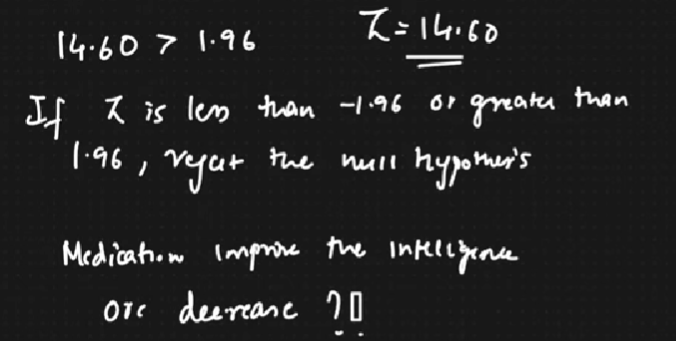 14.60 > 1.96 Z = 14.60
If Z is less than -1.96 or greater than
1.96, reject the null hypothesis
Medication improve the intelligence
ore decrease ?!!